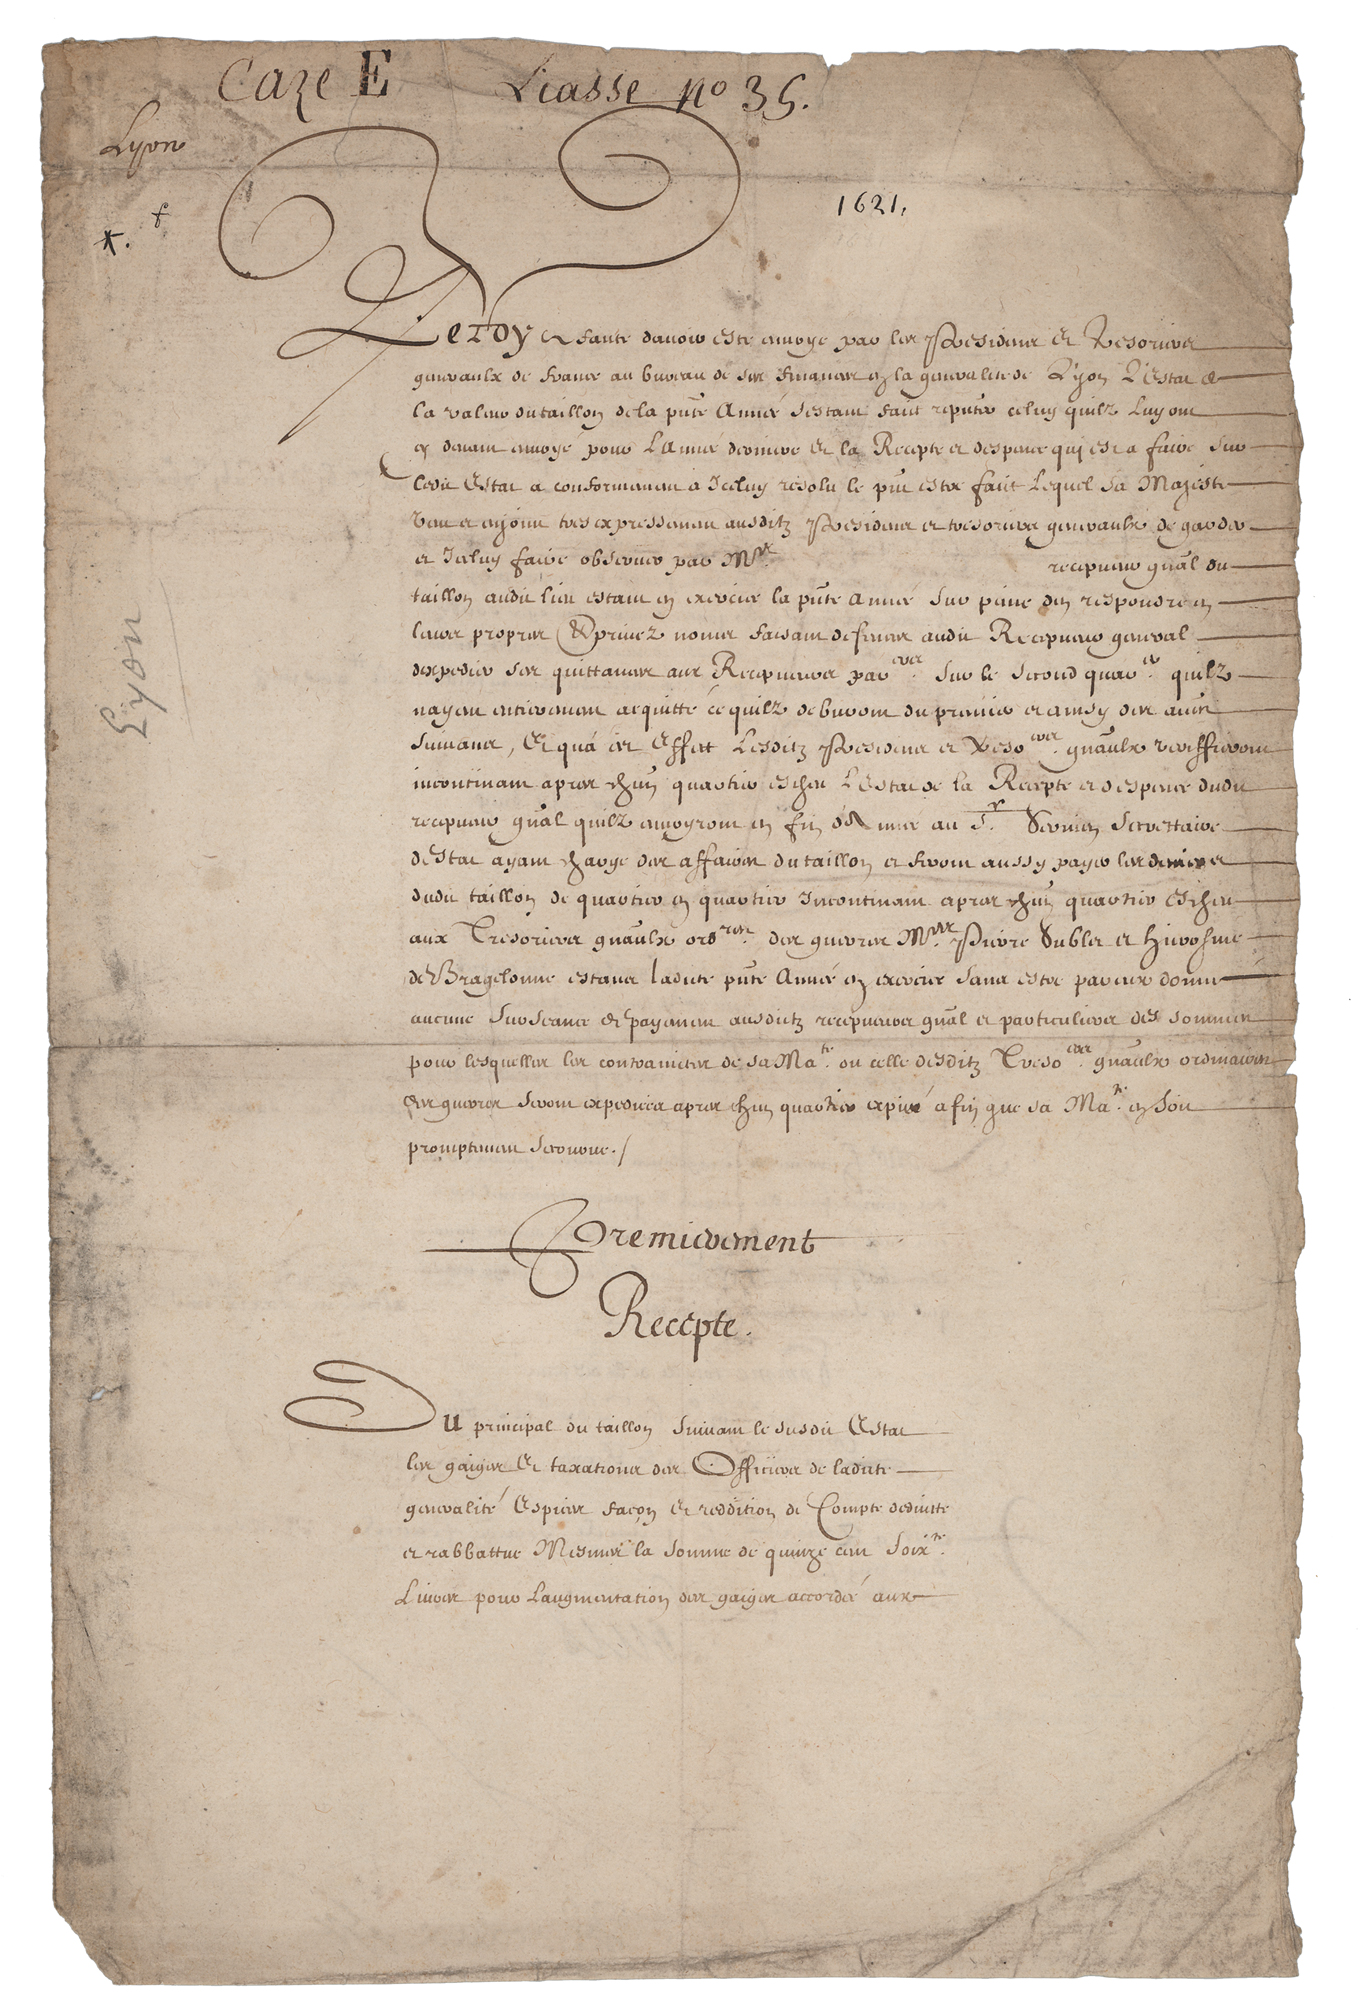 Caze E Liasse no 35.
Lyon
1621.
Le roy a faute davoir este envoyé par les Presidens et Tresoriers
generaulx de France au bureau de ses finances en la generalité de Lyon L'estat de
la valeur du taillon de la pñte Année sestant fait reputer celuy quilz luy ont
cy devant envoyé pour L'année derniere et la Recepte et despence qui est a faire sur
ledit Estat a conformement à Iceluy resolu le pñt estre fait Lequel sa Majesté
veut et enjoint tres expressement ausditz Presidens et tresoriers generaulx de garder
et Iceluy faire observer par Mre. recepveur gñal du
taillon audit lieu estant en exercice la pñte année sur peine den respondre en
leurs propres et privez noms faisant defences audit Recepveur general
dexpedier ses quittances aux Recepveurs parers. sur le second quaer. quilz
nayent entierement acquitté ce quilz debvront du premier et ainsy des autres
suivans, et qua ces Effect Lesditz Presidens et Tresoers. gñaulx verifieront
incontinant apres chun quartier escheu L'Estat de la Recepte et despence dudit
recepveur gñal quilz envoyront en fin d'Année au Sr. Servien Secrettaire
destat ayant charge des affaires du taillon et feront aussy payer les deniers
dudit taillon de quartier en quartier Incontinant apres chun quartier escheu
aux Tresoriers gñaulx ordres. des guerres Mres. Pierre Sublet et Hierosme
de Bragelonne estans ladite pñte Année en exercice sans estre par eux donné
aucune surseance de payement ausditz recepveurs gñal et particuliers des sommes
pour lesquelles les contraintes de sa Mate. ou celle desditz Tresoers. gñaulx ordinaires
des guerres seront expediées apres chun quartier expiré afin que sa Mate. en soit
promptement secourue./
Premierement
Recepte.
Du principal du taillon suivant le susdit Estat
les gaiges et taxations des Officiers de ladite
generalité Espices façon et reddition de Compte deduitte
et rabbattue Mesmes la somme de quinze cent soixte.
Livres pour Laugmentation des gaiges accordée aux
Lyon